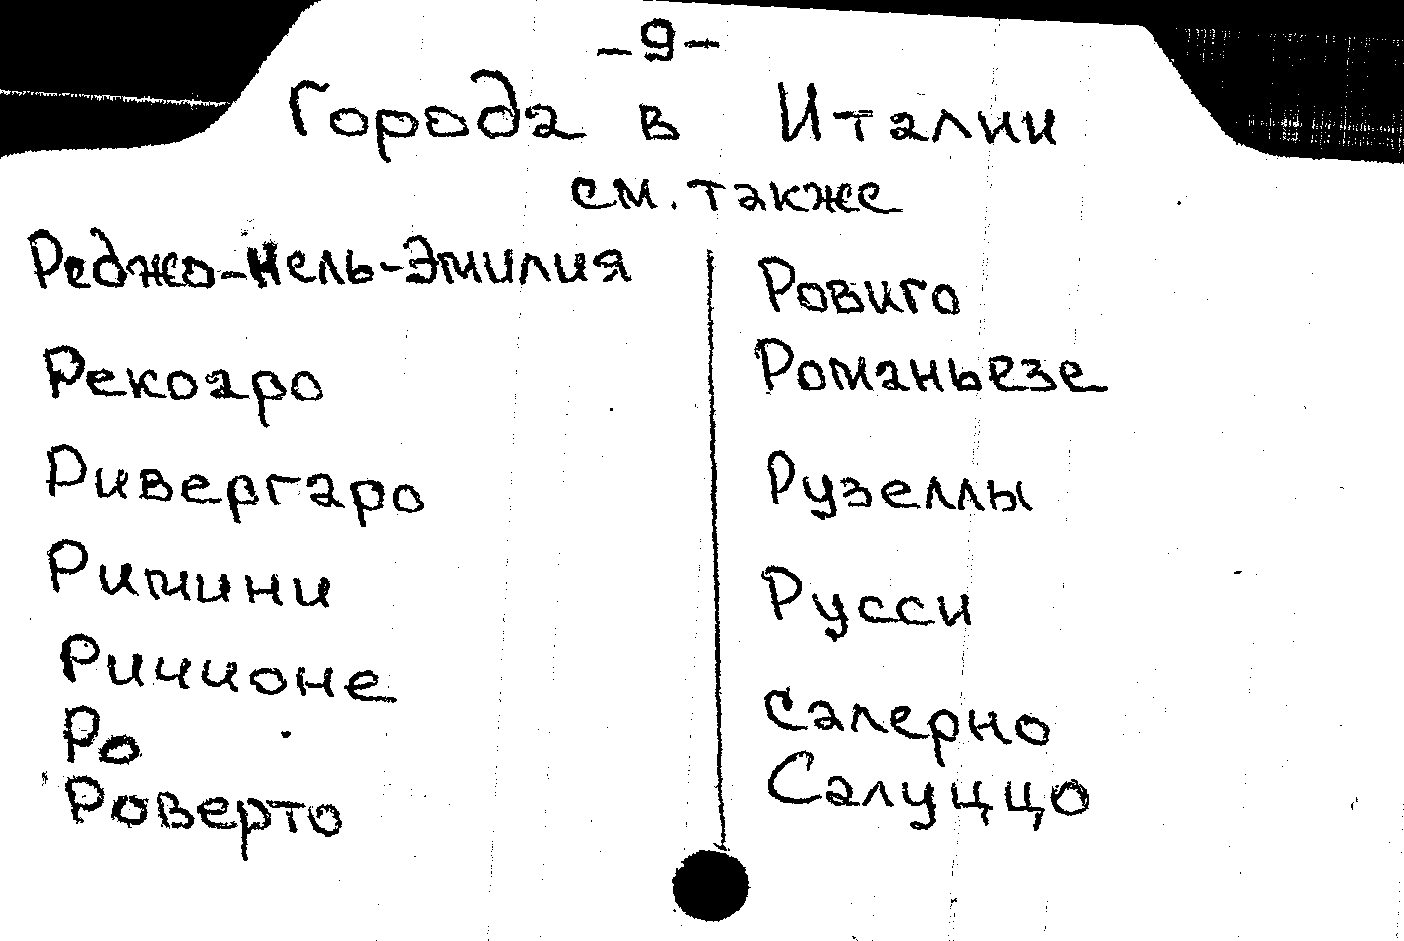 -9-
Города в Италии
см. также
Реджо-Нель-Эмилия
Рекоаро
Ривергаро
Римини
Риччионе
Ро
Роверто
Ровиго
Романьезе
Рузеллы
Русси
Салерно
Салуццо